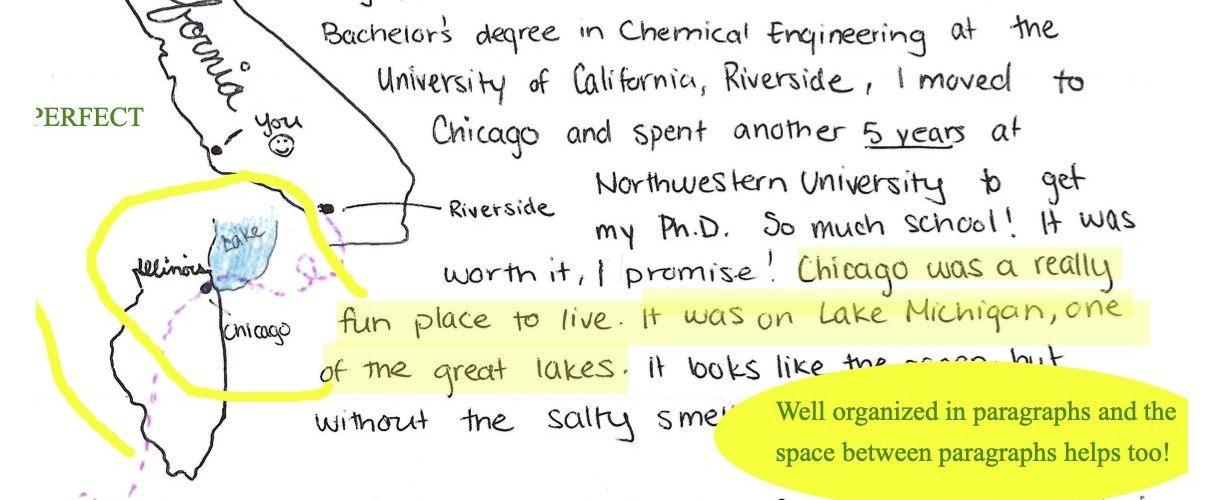 Bachelor's degree in Chemical Engineering at the
University of California, Riverside, I moved to
Chicago and spent another 5 years at
Northwestern University to get
my Ph.D. So much school! It was
worth it, I promise! Chicago was a really
fun place to live. It was on Lake Michigan, one
of the great lakes. it looks like the but
without the salty
fornia
PERFECT
you
Riverside
Lake
Illinois
Chicago
Well organized in paragraphs and the
space between paragraphs helps too!